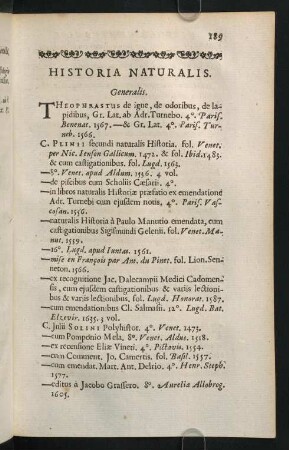 189
HISTORIA NATURALIS.
Generalis.
THEOPHRASTUS de igne, de odoribus, de la-
pidibus, Gr. Lat. ab Adr. Turnebo. 4º. Paris.
Benenat. 1567.—& Gr. Lat. 4º. Paris. Tur-
neb. 1566.
C. PLINII secundi naturalis Historia. fol. Venet.
per Nic. Ienson Gallicum. 1472. & fol. Ibid. 1483.
& cum castigationibus. fol. Lugd. 1563.
—8º. Venet. apud Aldum. 1536. 4 vol.
—de piscibus cum Scholiis Cæsarii. 4º.
—in libros naturalis Historiæ præfatio ex emendatione
Adr. Turnebi cum ejusdem notis, 4º. Paris. Vas-
cosan. 1556.
—naturalis Historia à Paulo Manutio emendata, cum
castigationibus Sigismundi Gelenii. fol. Venet. Ma-
nut. 1559.
—16º. Lugd. apud Iuntas. 1561.
—mise en François par Ant. du Pinet. fol. Lion. Sen-
neton. 1566.
—ex recognitione Jac. Dalecampii Medici Cadomen-
sis, cum ejusdem castigationibus & variis lectioni-
bus & variis lectionibus, fol. Lugd. Honorat. 1587.
—cum emendationibus Cl. Salmasii. 12º. Lugd. Bat.
Elzevir. 1635. 3 vol.
C. Julii SOLINI Polyhistor. 4º. Venet. 1473.
—cum Pomponio Mela. 8º. Venet. Aldus. 1518.
—ex recensione Eliæ Vineti. 4º. Pictavis. 1554.
—cum Comment. Jo. Camertis. fol. Basil. 1557.
—cum emendat. Mart. Ant. Delrio. 4º. Henr. Steph.
1577.
—editus à Jacobo Grassero. 8º. Aurelia Allobrog.
1605.